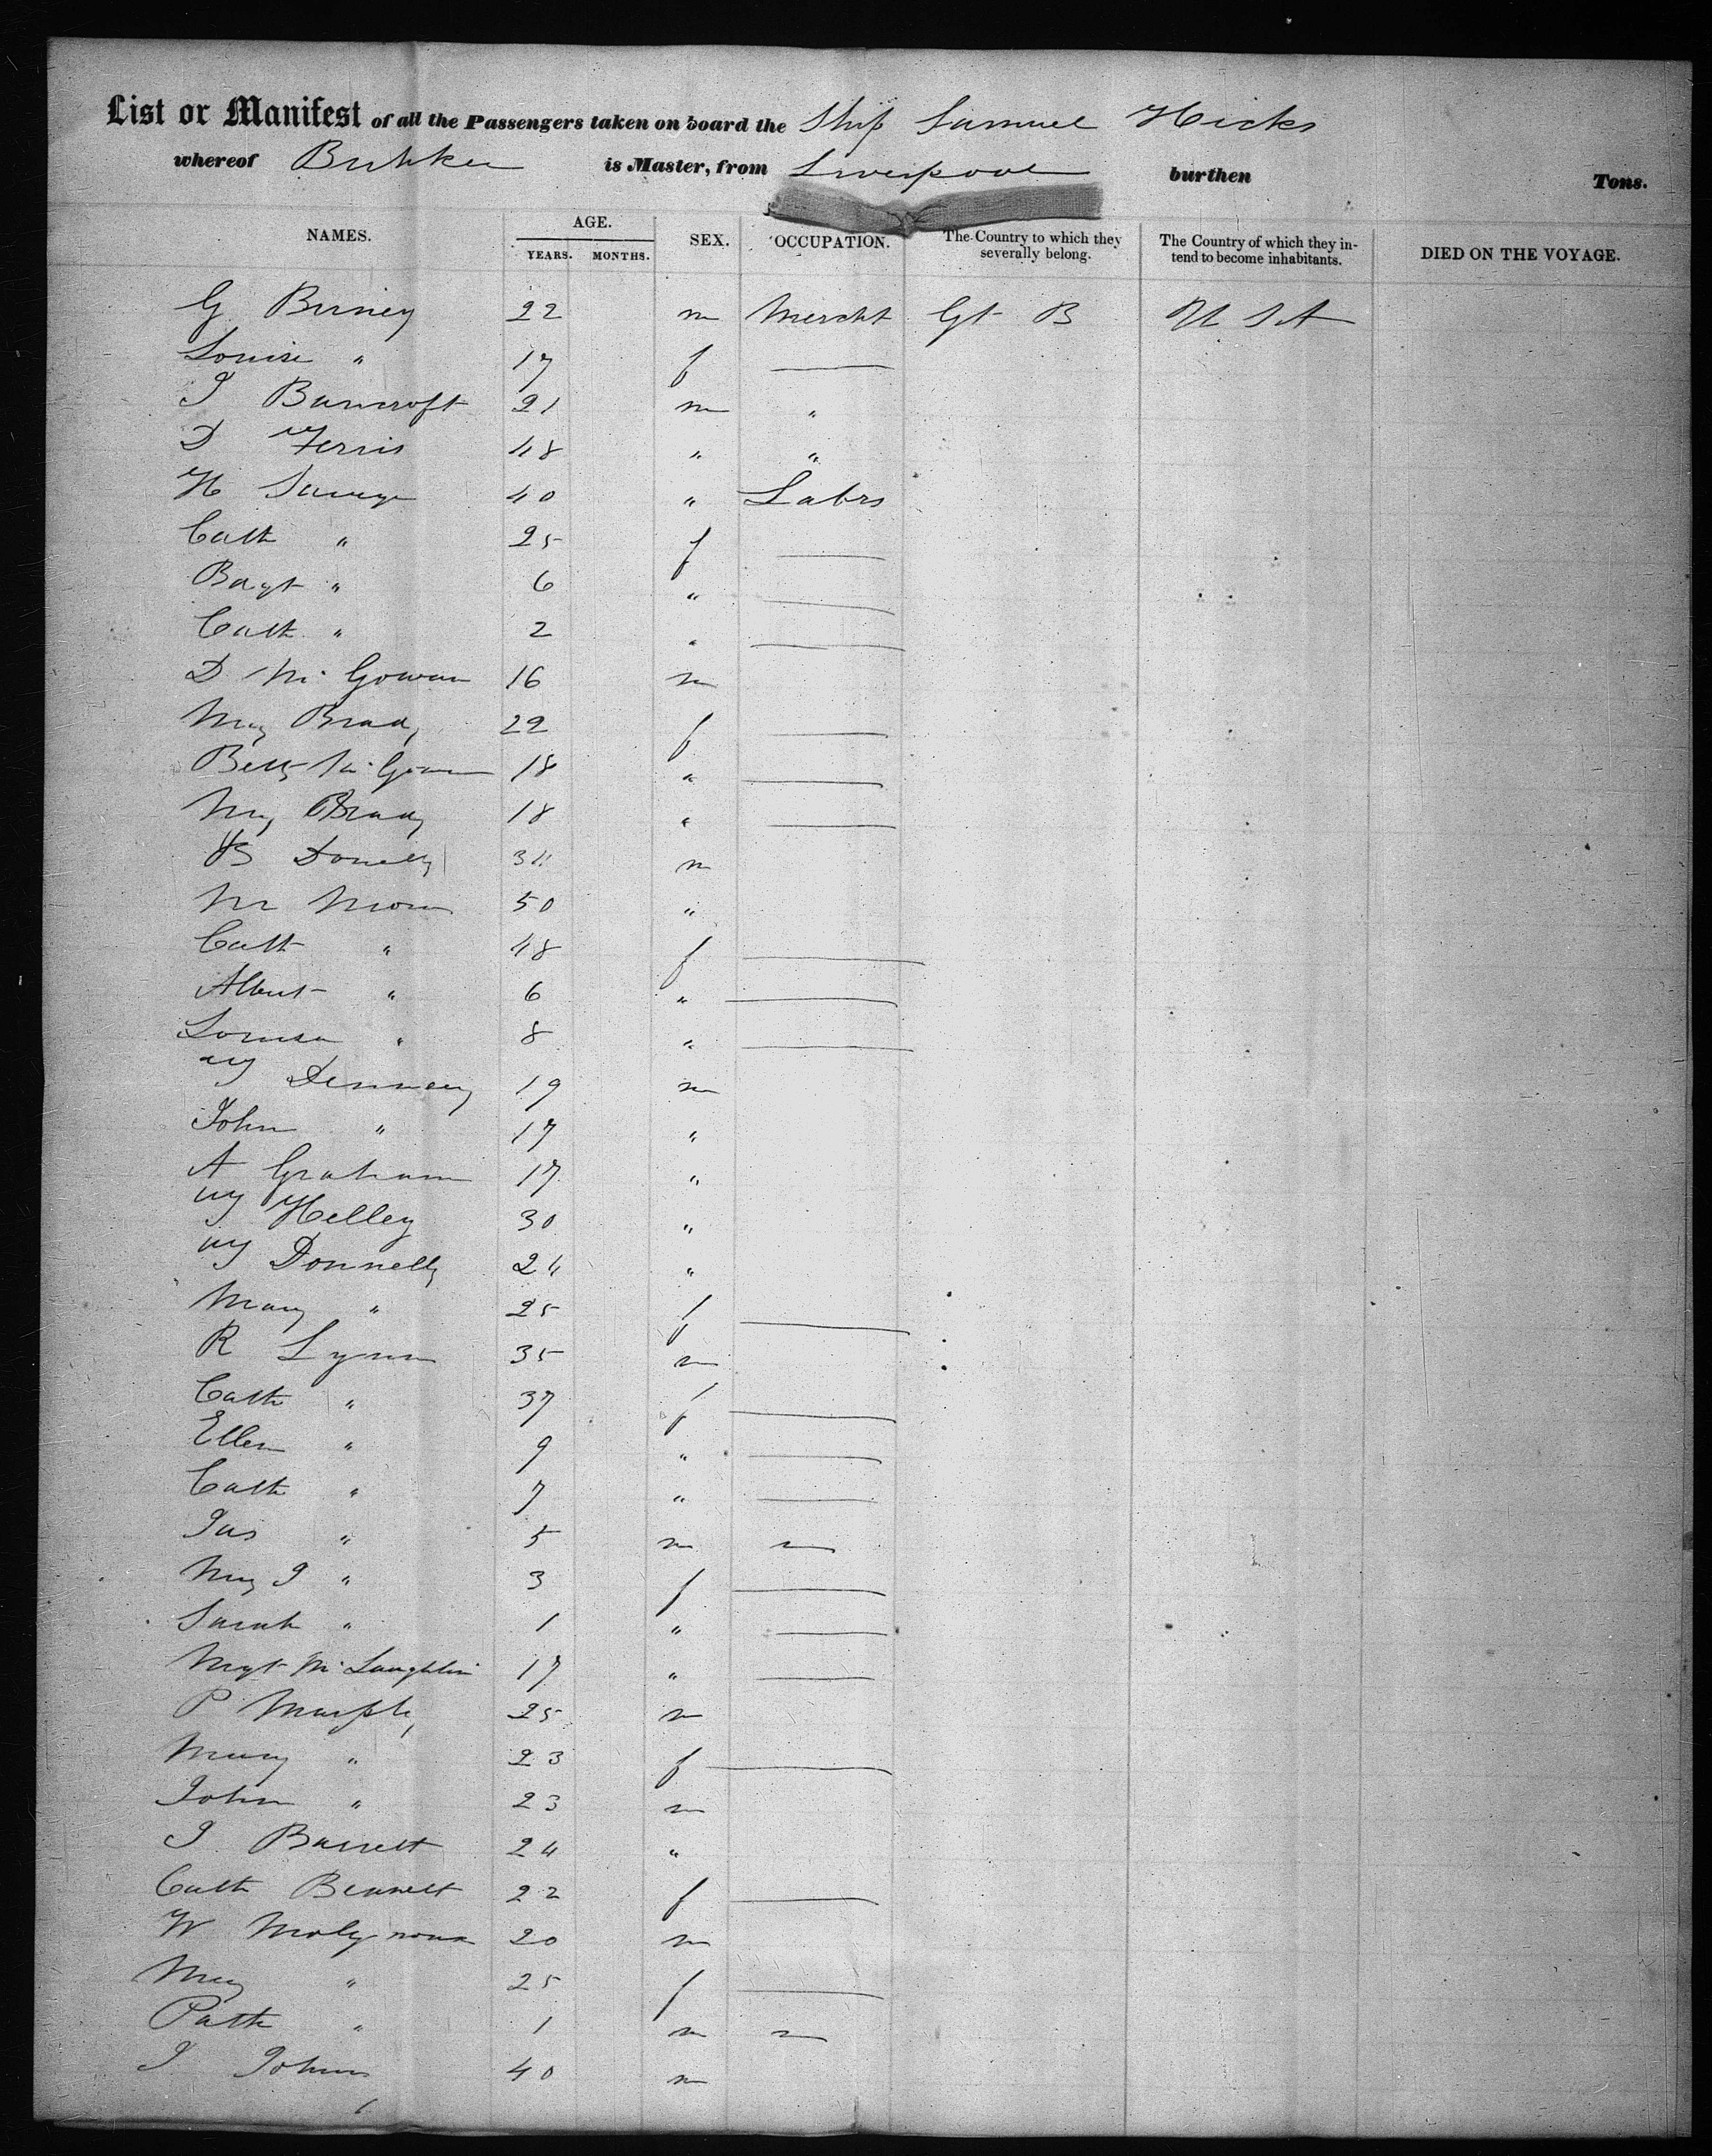 List or Manifest of all the Passengers taken on board the Ship Samuel Hicks
whereof Bunker is Master, from Liverpool burthen Tons.
NAMES. AGE. YEARS. MONTHS. SEX. OCCUPATION. The Country to which they severally belong. The Country of which they intend to become inhabitants. DIED ON THE VOYAGE.
G Birney 22 m Mercht Gt B U S A
Louise " 17 f —
J Bancroft 21 m "
D Ferris 48 " "
H Savage 40 " Labrs
Cath " 25 f —
" 6 " —
Cath " 2 " —
D McGowan 16 m
My Brady 22 f —
Betty McGowan 18 " —
My Brady 18 " —
B Donelly 34 m
50 "
Cath " 48 f —
Albert " 6 " —
Louisa " 8 " —
Wm Dennery 19 m
John " 17 "
A Graham 17 "
Wm Kelley 30 "
Wm Donnelly 24 "
Mary " 25 f —
R Lynn 35 m
Cath " 37 f —
Ellen " 9 " —
Cath " 7 " —
Jas " 5 m —
My J " 3 f —
Sarah " 1 " —
Mgt McLaughlin 17 " —
P Murphy 25 m
Mary " 23 f —
John " 23 m
J Barrett 24 "
Cath Bennett 22 f —
W Molynoux 20 m
My " 25 f —
Patk " 1 m —
J 40 m